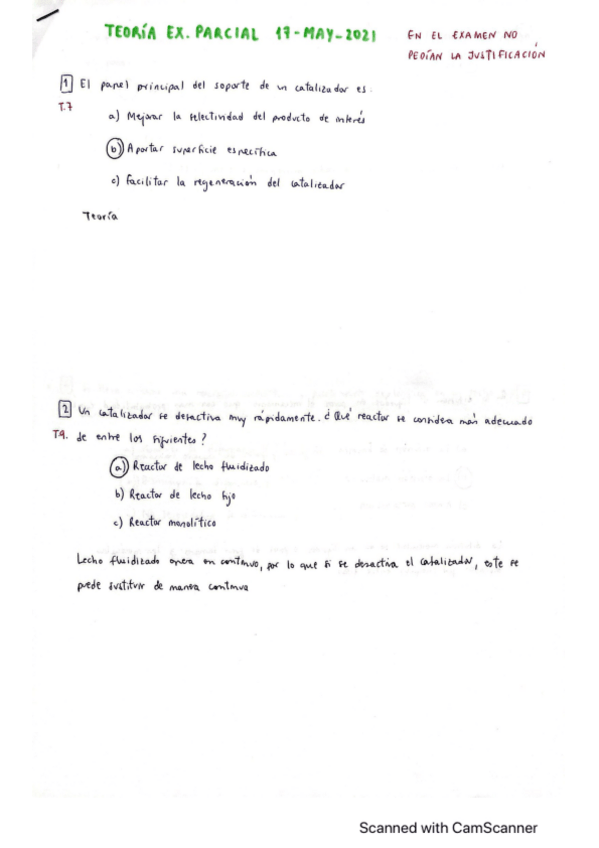 TEORÍA EX. PARCIAL 17-MAY-2021
EN EL EXAMEN NO
PEDÍAN LA JUSTIFICACIÓN
1 El papel principal del soporte de un catalizador es.
T.7
a) Mejorar la selectividad del producto de interés
b) Aportar superficie específica
c) Facilitar la regeneración del catalizador
Teoría
2 Un catalizador se desactiva muy rápidamente. ¿Qué reactor se considera más adecuado
T9. de entre los siguientes?
a) Reactor de lecho fluidizado
b) Reactor de lecho fijo
c) Reactor monolítico
Lecho fluidizado opera en continuo, por lo que si se desactiva el catalizador, este se
puede sustituir de manera continua
Scanned with CamScanner